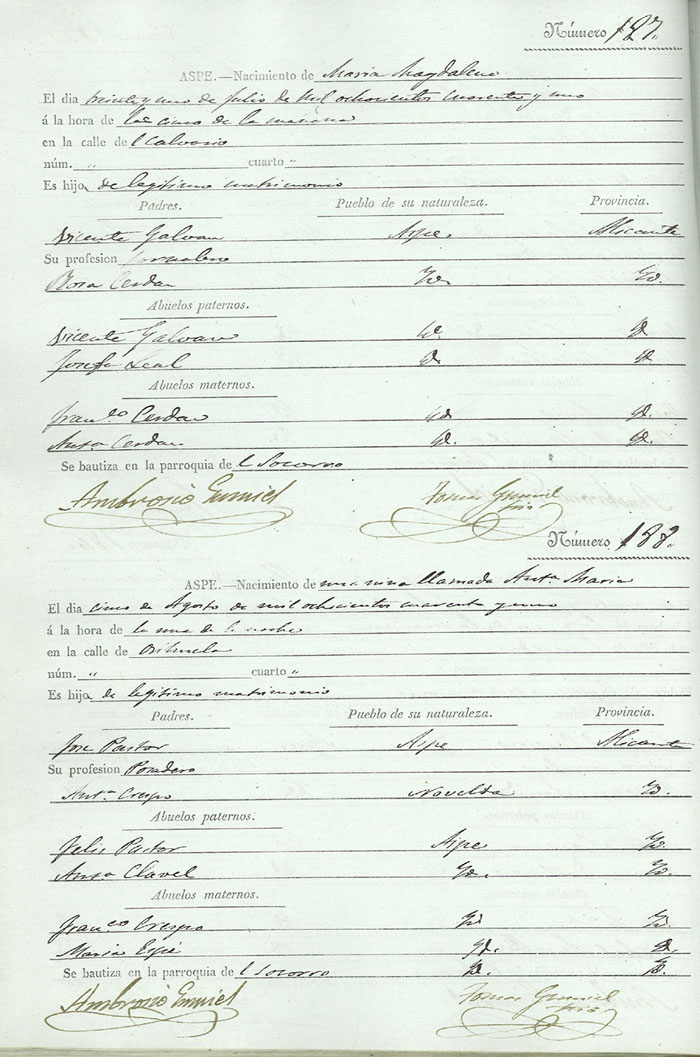 Número 187.
ASPE.—Nacimiento de Maria Magdalena
El dia treinta y uno de Julio de Mil ochocientos cuarenta y uno
á la hora de las cinco de la mañana
en la calle de l Calvario
núm. " cuarto "
Es hija de legitimo matrimonio
Padres. Pueblo de su naturaleza. Provincia.
Vicente Galvan Aspe Alicante
Su profesion Jornalero
Rosa Cerdan Yd. Yd.
Abuelos paternos.
Vicente Galvan Yd. Yd.
Josefa Leal Yd. Yd.
Abuelos maternos.
Fran.co Cerdan Yd. Yd.
Ant.a Cerdan Yd. Yd.
Se bautiza en la parroquia de l Socorro
Ambrosio Gumiel Tomas Gumiel
srio
Número 188.
ASPE.—Nacimiento de una niña llamada Ant.a Maria
El dia cinco de Agosto de mil ochocientos cuarenta y uno
á la hora de la una de la noche
en la calle de Orihuela
núm. " cuarto "
Es hija de legitimo matrimonio
Padres. Pueblo de su naturaleza. Provincia.
Jose Pastor Aspe Alicante
Su profesion Posadero
Ant.a Crespo Novelda Yd.
Abuelos paternos.
Felix Pastor Aspe Yd.
Ant.a Clavel Yd. Yd.
Abuelos maternos.
Fran.co Crespo Yd. Yd.
Maria Yd. Yd.
Se bautiza en la parroquia de l Socorro Yd. Yd.
Ambrosio Gumiel Tomas Gumiel
srio